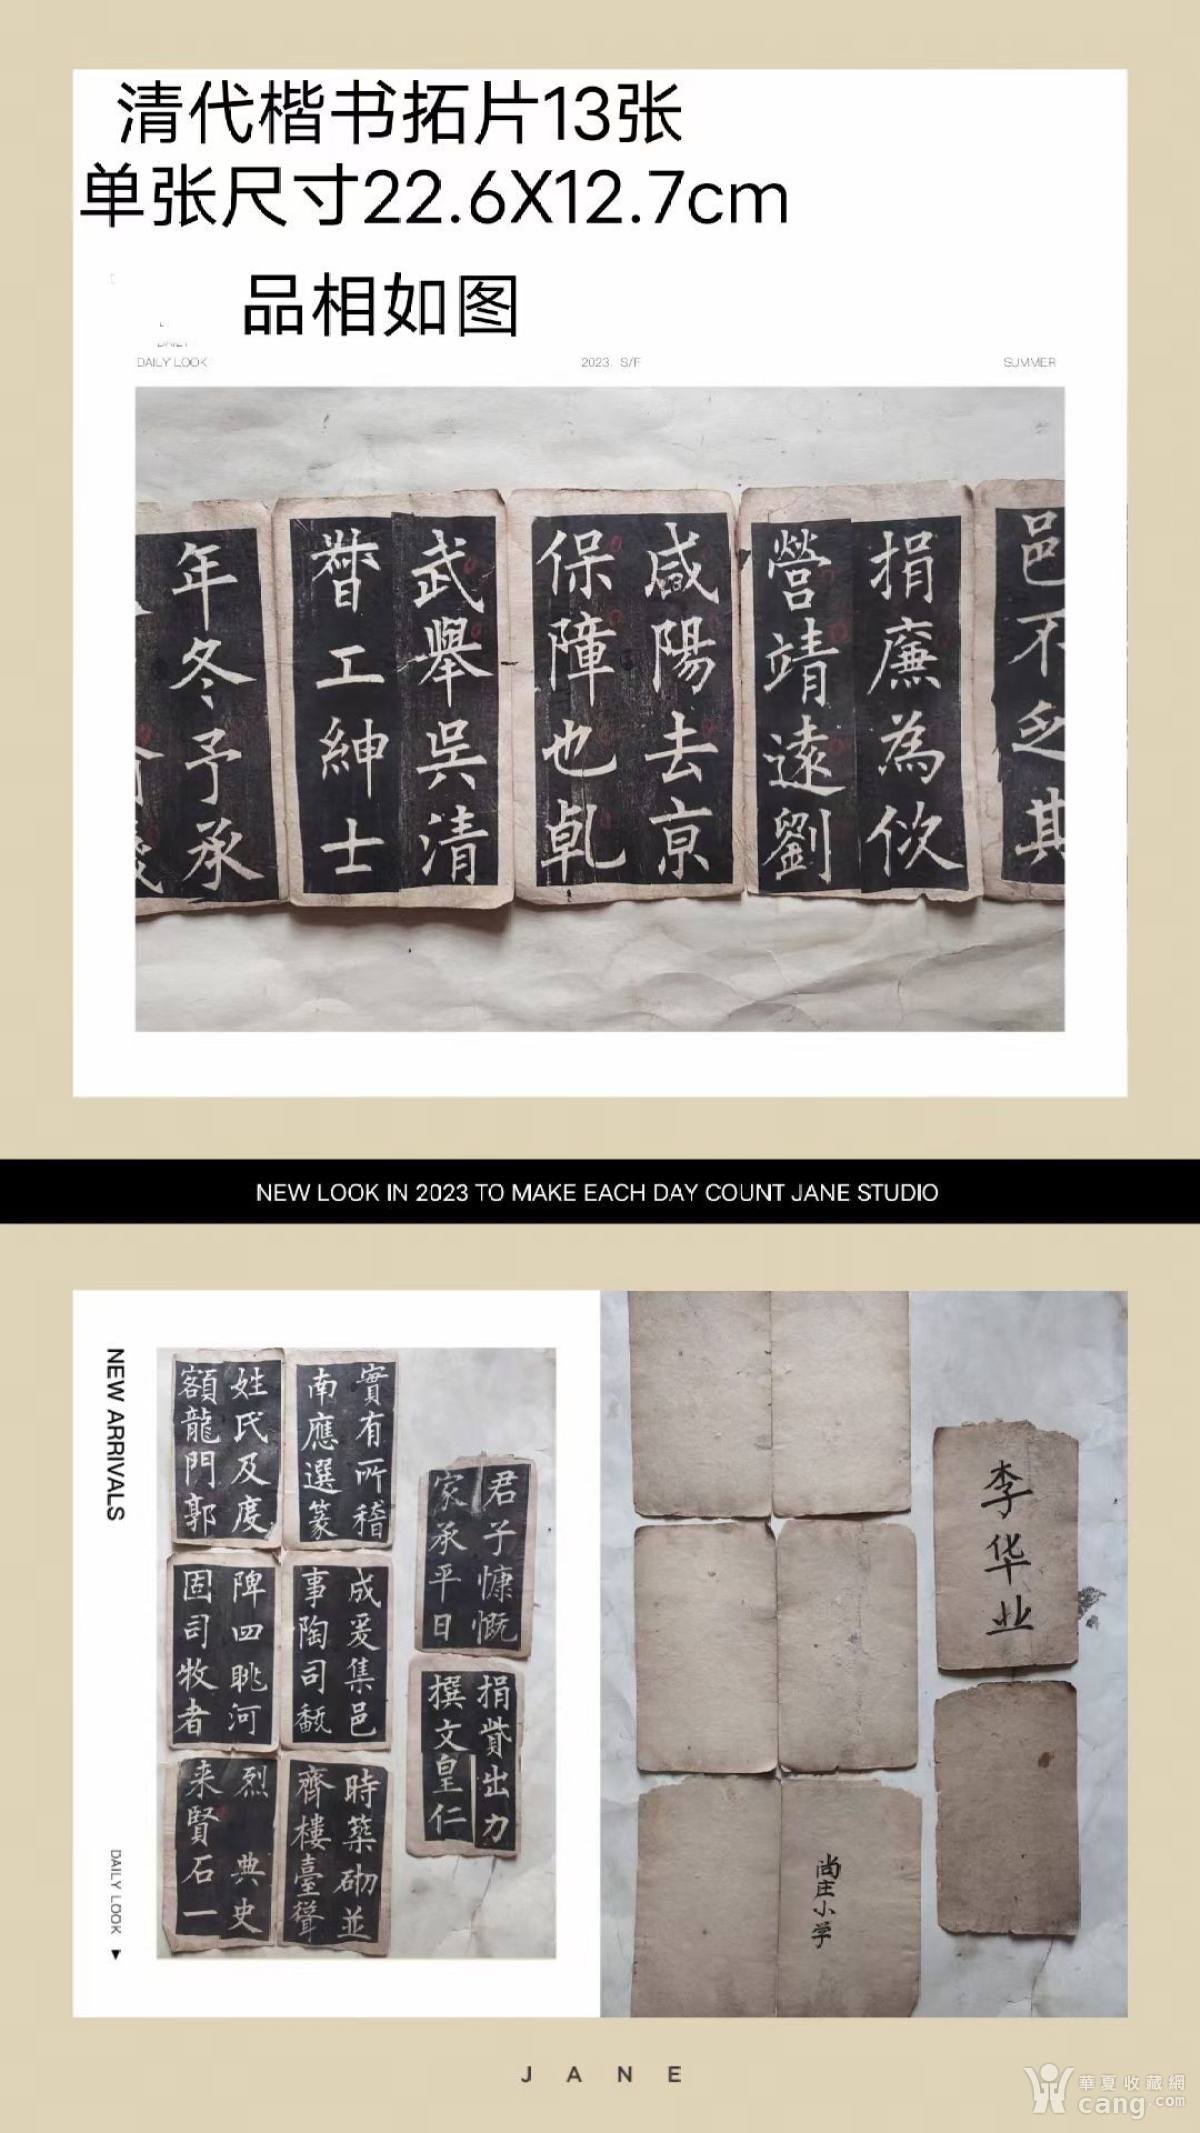 清代楷书拓片13张
单张尺寸22.6X12.7cm
品相如图
DAILY LOOK
2023 S/F
SUMMER
邑不乏其
捐廉為倣
營靖遠劉
咸陽去京
保障也乹
武舉吳清
督工紳士
年冬予承
NEW LOOK IN 2023 TO MAKE EACH DAY COUNT JANE STUDIO
NEW ARRIVALS
DAILY LOOK
實有所稽
南應選篆
姓氏及度
額龍門郭
成爰集邑
事陶司
陴四眺河
固司牧者
時築砌並
齊樓臺聳
烈 典史
来賢石一
君子慷慨
家承平日
捐貲出力
撰文皇仁
李华业
尚庄小学
JANE
華夏收藏網
cang.com